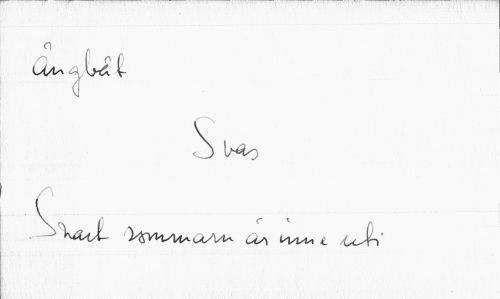 Ångbåt
Svas
Snart sommarn är inne uti